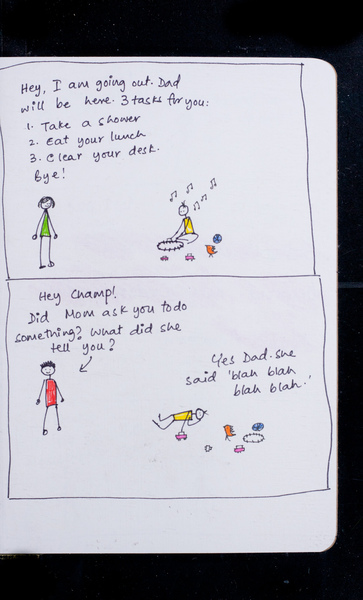 Hey, I am going out. Dad
will be here. 3 tasks for you:
1. Take a shower
2. Eat your lunch
3. Clear your desk.
Bye!
Hey Champ!
Did Mom ask you to do
something? What did she
tell you?
Yes Dad. She
said 'blah blah
blah blah.'